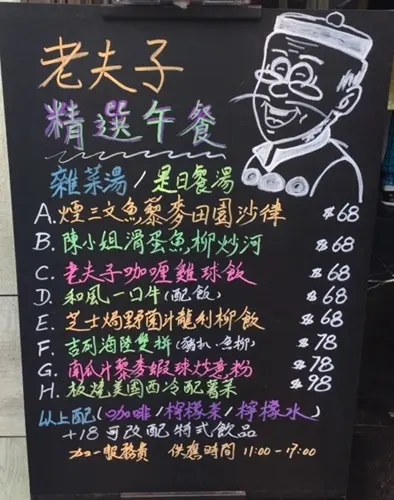 老夫子
精選午餐
雜菜湯/是日餐湯
A.煙三文魚藜麥田園沙律 $68
B.陳小姐滑蛋魚柳炒河 $68
C.老夫子咖喱雞球飯 $68
D.和風一口牛(配飯) $68
E.芝士焗野菌汁龍利柳飯 $68
F.吉列海陸雙拼(豬扒、魚柳) $78
G.南瓜汁藜麥蝦球炒意粉 $78
H.板燒美國西冷配薯菜 $98
以上配(咖啡/檸檬茶/檸檬水)
+18可改配特式飲品
加一服務費 供應時間 11:00-17:00